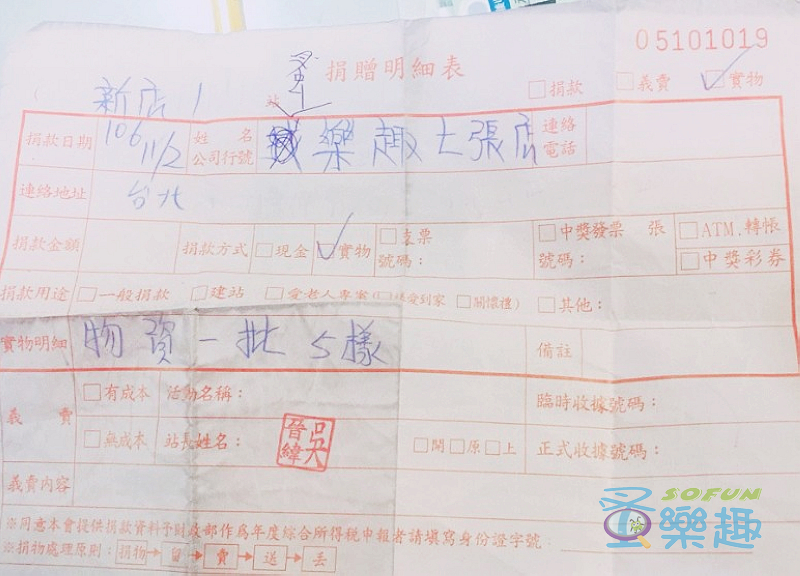 05101019
捐贈明細表
□捐款 □義賣 ☑實物
新店 1 站
捐款日期 106 11/2 姓名 公司行號 圣樂趣七張店 連絡電話
連絡地址 台北
捐款金額 捐款方式 □現金 ☑實物 □支票 號碼： □中獎發票 張 號碼： □ATM.轉帳 □中獎彩券
捐款用途 □一般捐款 □建站 □愛老人專案(□愛到家 □關懷禮) □其他：
實物明細 物資一批 5樣 備註
義賣 □有成本 活動名稱： 臨時收據號碼：
□無成本 站長姓名： 吳晉緯 □開□原□上 正式收據號碼：
義賣內容
※同意本會提供捐款資料予財政部作為年度綜合所得稅申報者請填寫身份證字號：
※捐物處理原則：捐物→留→賣→送→丟
SOFUN
圣樂趣